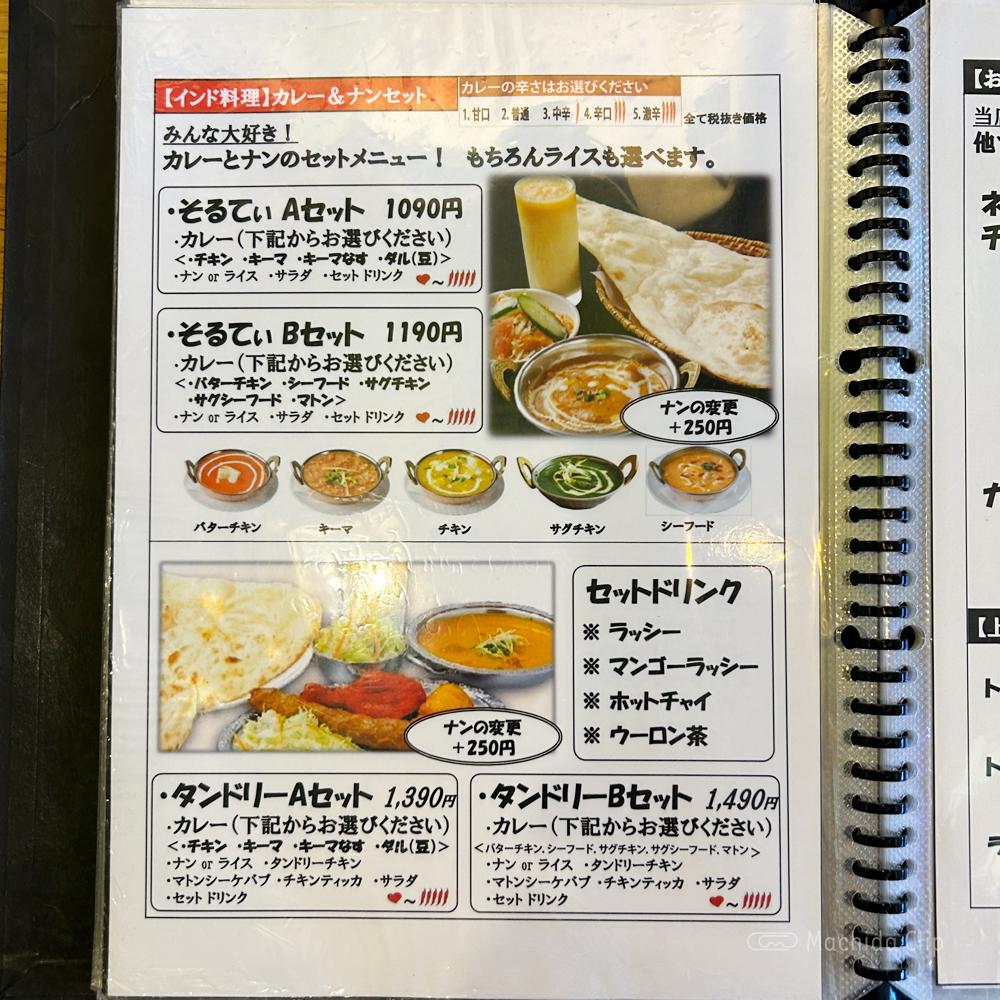 【インド料理】カレー＆ナンセット
カレーの辛さはお選びください
1.甘口 2.普通 3.中辛 4.辛口 5.激辛
全て税抜き価格
みんな大好き！
カレーとナンのセットメニュー！ もちろんライスも選べます。
・そるてぃ Aセット 1090円
・カレー（下記からお選びください）
＜・チキン ・キーマ ・キーマなす ・ダル（豆）＞
・ナン or ライス ・サラダ ・セットドリンク ～
・そるてぃ Bセット 1190円
・カレー（下記からお選びください）
＜・バターチキン ・シーフード ・サグチキン
・サグシーフード ・マトン＞
・ナン or ライス ・サラダ ・セットドリンク ～
ナンの変更
＋250円
バターチキン キーマ チキン サグチキン シーフード
ナンの変更
＋250円
セットドリンク
※ ラッシー
※ マンゴーラッシー
※ ホットチャイ
※ ウーロン茶
・タンドリーAセット 1,390円
・カレー（下記からお選びください）
＜・チキン ・キーマ ・キーマなす ・ダル（豆）＞
・ナン or ライス ・タンドリーチキン
・マトンシーケバブ ・チキンティッカ ・サラダ
・セットドリンク ～
・タンドリーBセット 1,490円
・カレー（下記からお選びください）
＜バターチキン、シーフード、サグチキン、サグシーフード、マトン＞
・ナン or ライス ・タンドリーチキン
・マトンシーケバブ ・チキンティッカ ・サラダ
・セットドリンク ～
【お
当店
他
チ
【上
ト
ト
Machida Clip